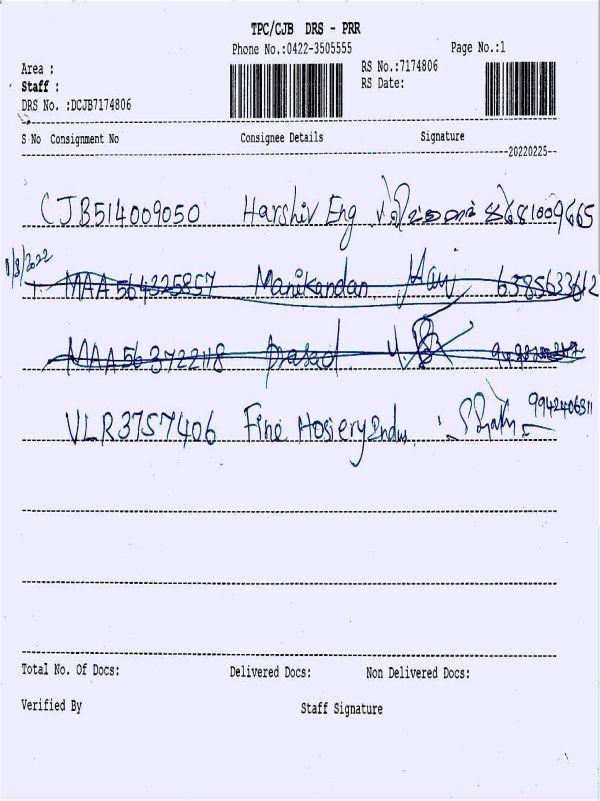 TPC/CJB DRS - PRR
Phone No.:0422-3505555 Page No.:1
Area : RS No.:7174806
Staff : RS Date:
DRS No. :DCJB7174806
S No Consignment No Consignee Details Signature
20220225
CJB514009050 Harshiv Eng
1/3/2022
1. MAA564325857 Manikandan Mani 6385633612
MAA563722118 prasad
VLR3757406 Fine Hosiery Indus. 9942406311
Total No. Of Docs: Delivered Docs: Non Delivered Docs:
Verified By Staff Signature